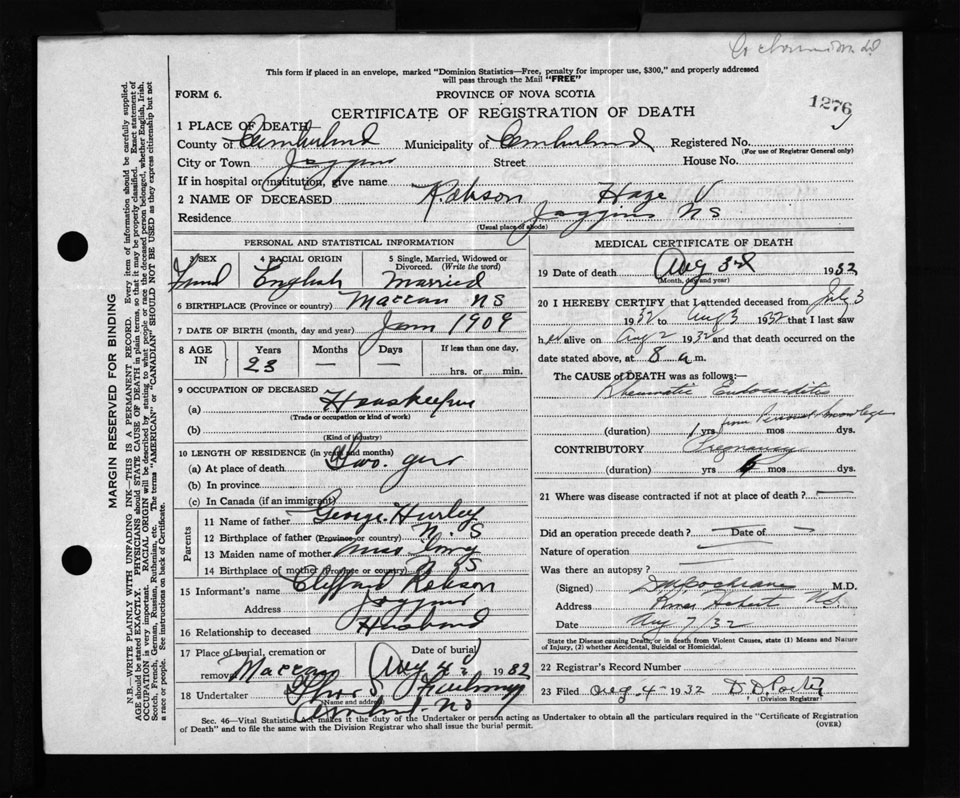 This form if placed in an envelope, marked "Dominion Statistics—Free, penalty for improper use, $300," and properly addressed
will pass through the Mail "FREE"
FORM 6.
PROVINCE OF NOVA SCOTIA
1276
CERTIFICATE OF REGISTRATION OF DEATH
1 PLACE OF DEATH
County of Cumberland Municipality of Cumberland Registered No.
(For use of Registrar General only)
City or Town Joggins Street House No.
If in hospital or institution, give name
2 NAME OF DECEASED Robson Haze V
Residence Joggins NS
(Usual place of abode)
PERSONAL AND STATISTICAL INFORMATION
3 SEX 4 RACIAL ORIGIN 5 Single, Married, Widowed or Divorced. (Write the word)
English Married
6 BIRTHPLACE (Province or country) Maccan NS
7 DATE OF BIRTH (month, day and year) Jan 1909
8 AGE IN Years Months Days If less than one day,
23 — — hrs. or min.
9 OCCUPATION OF DECEASED
(a) Housekeeper
(Trade or occupation or kind of work)
(b)
(Kind of industry)
10 LENGTH OF RESIDENCE (in years and months)
(a) At place of death Two
(b) In province
(c) In Canada (if an immigrant)
Parents
11 Name of father George Hurley
12 Birthplace of father (Province or country) N. S
13 Maiden name of mother Miss
14 Birthplace of mother (Province or country) NS
15 Informant's name Clifford Robson
Address Joggins
16 Relationship to deceased Husband
17 Place of burial, cremation or removal Date of burial
Maccan Aug 4 1932
18 Undertaker
(Name and address)
NS
MEDICAL CERTIFICATE OF DEATH
19 Date of death Aug 3d 1932
(Month, day and year)
20 I HEREBY CERTIFY that I attended deceased from July 3
1932 to Aug 3 1932 that I last saw
her alive on Aug 2 1932 and that death occurred on the
date stated above, at 8 a m.
The CAUSE of DEATH was as follows:—
Rheumatic Endocarditis
from Personal Knowledge
(duration) 1 yrs mos dys.
CONTRIBUTORY Pregnancy
(duration) yrs 6 mos dys.
21 Where was disease contracted if not at place of death? —
Did an operation precede death? Date of
Nature of operation
Was there an autopsy?
(Signed) D M Cochrane M.D.
Address River Hebert NS.
Date Aug 7/32
State the Disease causing Death, or in death from Violent Causes, state (1) Means and Nature
of Injury, (2) whether Accidental, Suicidal or Homicidal.
22 Registrar's Record Number
23 Filed Aug 4 - 1932 D. D. Porter
(Division Registrar)
Sec. 46—Vital Statistics Act makes it the duty of the Undertaker or person acting as Undertaker to obtain all the particulars required in the "Certificate of Registration
of Death" and to file the same with the Division Registrar who shall issue the burial permit.
(OVER)
MARGIN RESERVED FOR BINDING
N.B.—WRITE PLAINLY WITH UNFADING INK—THIS IS A PERMANENT RECORD. Every item of information should be carefully supplied.
AGE should be stated EXACTLY. PHYSICIANS should STATE CAUSE OF DEATH in plain terms, so that it may be properly classified. Exact statement of
OCCUPATION is very important. RACIAL ORIGIN will be described by stating to what people or race the deceased person belonged, whether English, Irish,
Scotch, French, German, Russian, Ruthenian, etc. The terms "AMERICAN" or "CANADIAN" SHOULD NOT BE USED as they express citizenship but not
a race or people. See instructions on back of Certificate.